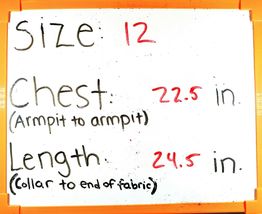 Size: 12
Chest: 22.5 in.
(Armpit to armpit)
Length: 24.5 in.
(Collar to end of fabric)